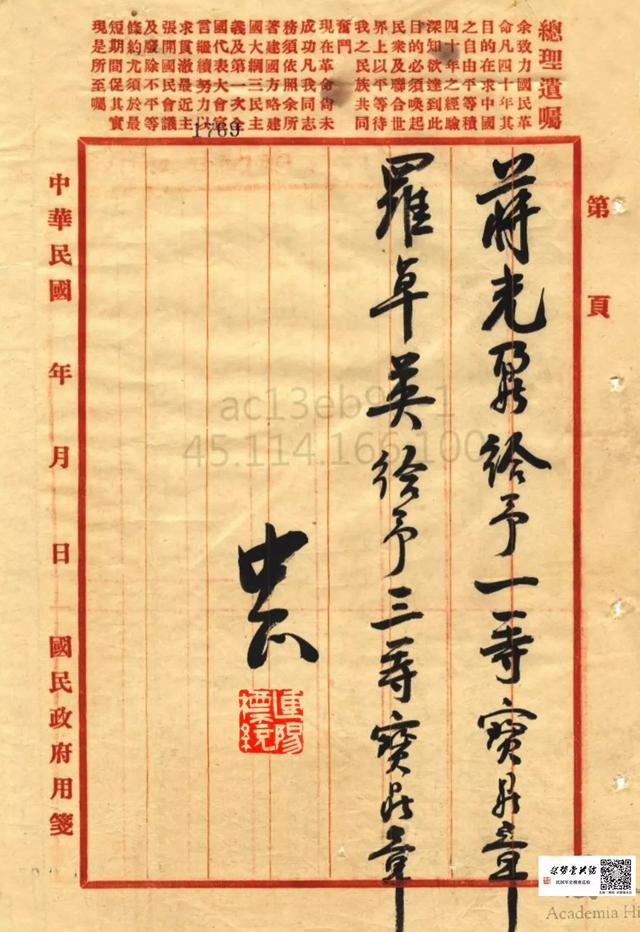 總理遺囑
余致力國民革
命凡四十年其
目的在求中國
之自由平等積
四十年之經驗
深知欲達到此
目的必須喚起
民眾及聯合世
界上以平等待
我之民族共同
奮鬥
現在革命尚未
成功凡我同志
務須依照余所
著建國方略建
國大綱三民主
義及第一次全
國代表大會宣
言繼續努力以
求貫澈最近主
張開國民會議
及廢除不平等
條約尤須於最
短期間促其實
現是所至囑
1769
第 頁
蔣光鼐給予一等寶鼎章
羅卓英給予三等寶鼎章
中正
中華民國 年 月 日 國民政府用箋
45.114.166.100
Academia Hi